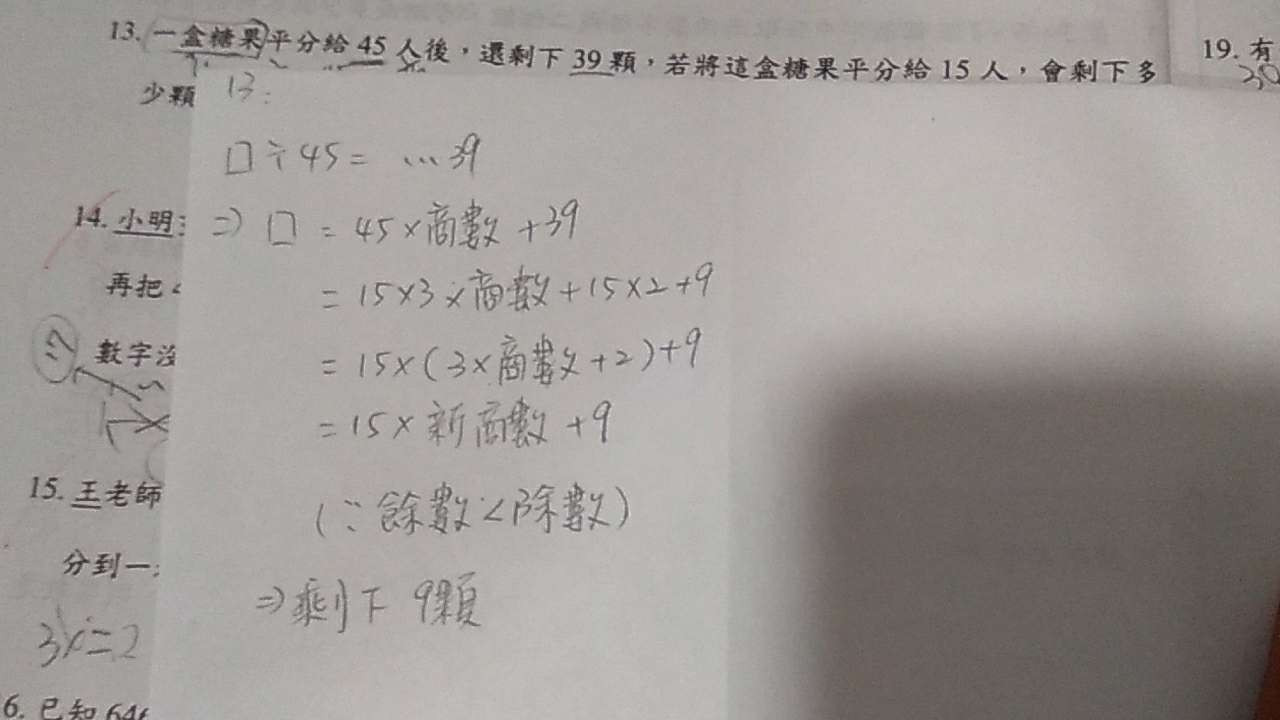 13. 一盒糖果平分給 45 人後，還剩下 39 顆，若將這盒糖果平分給 15 人，會剩下多
少顆
13:
□÷45= …39
⇒ □ = 45×商數+39
= 15×3×商數+15×2+9
= 15×(3×商數+2)+9
= 15×新商數+9
(∵餘數<除數)
⇒剩下 9顆
14. 小明
再把
數字沒
15. 王老師
分到一
3x=2
6. 已知 646
19. 有
30